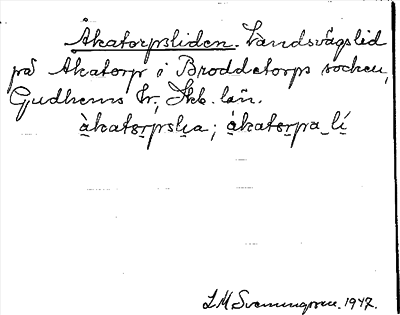 Åkatorpsliden. Landsvägslid
på Åkatorp i Broddetorps socken,
Gudhems hr, Skb. län.
åkatɷrpslia; åkatɷrpa lí
L M Svenungsson. 1947.